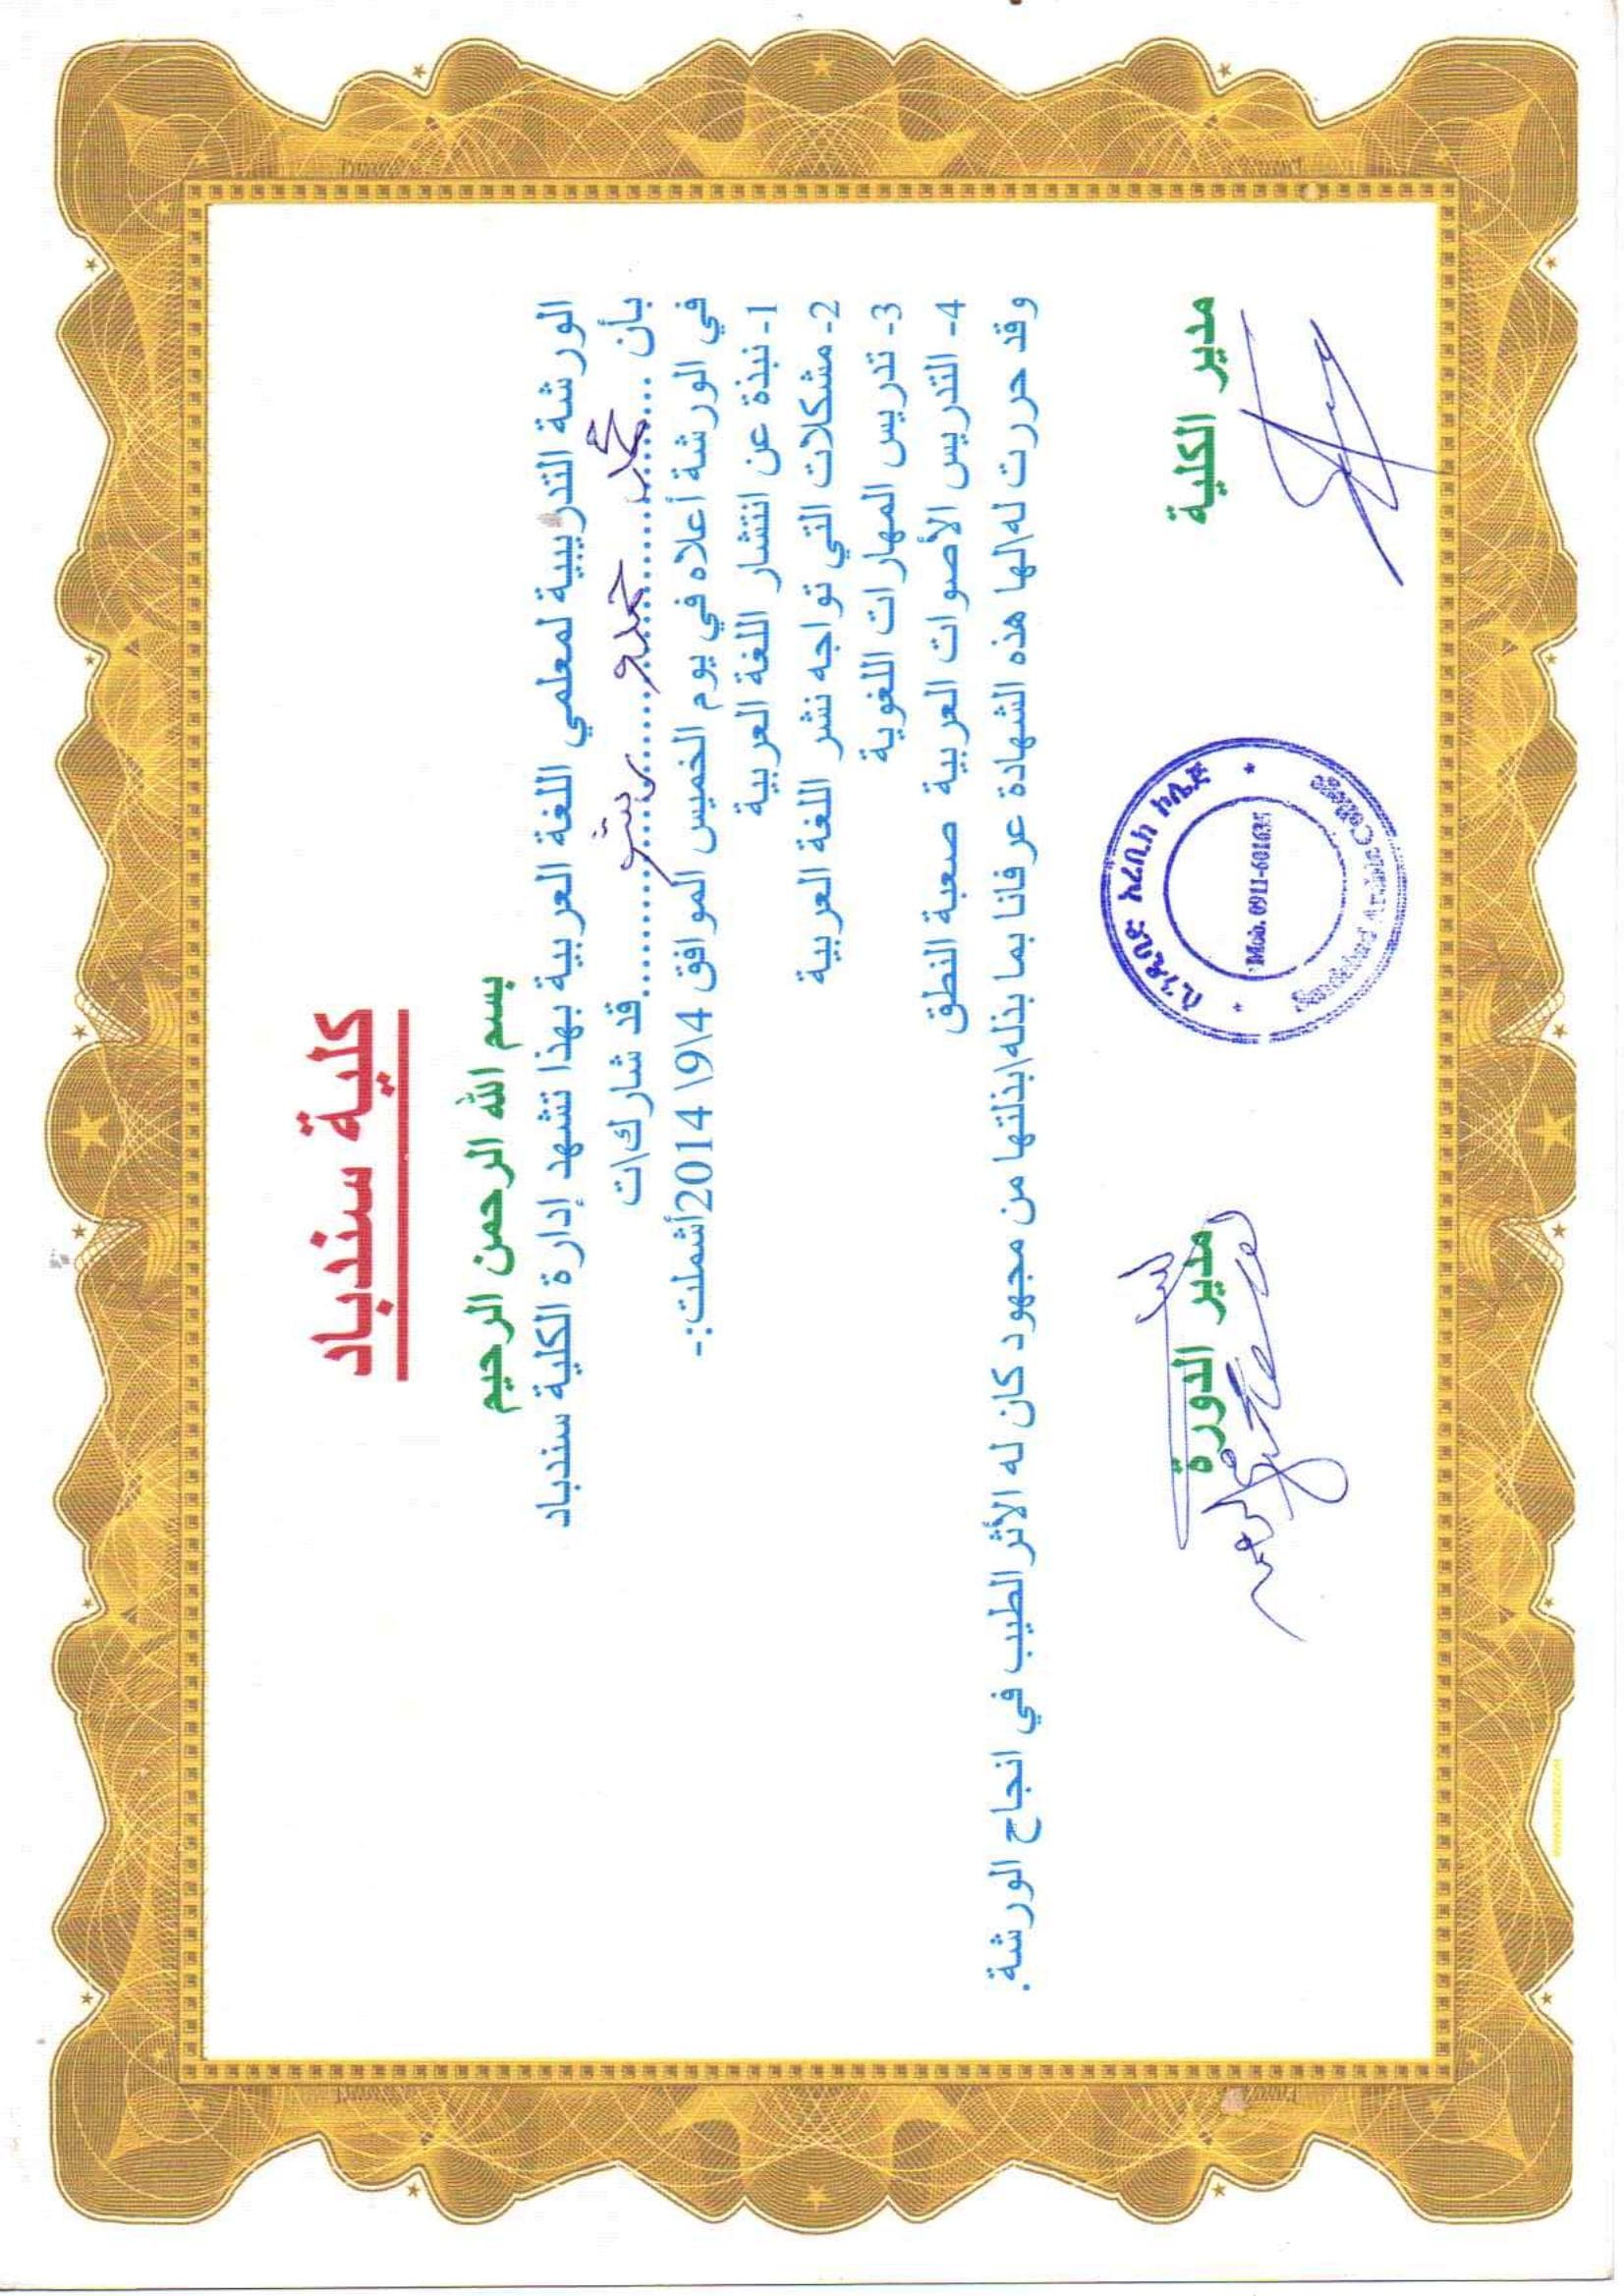 كلية سندباد
بسم الله الرحمن الرحيم
الورشة التدريبية لمعلمي اللغة العربية بهذا تشهد إدارة الكلية سندباد
بأن ...محمد... قد شارك\ت
في الورشة أعلاه في يوم الخميس الموافق 4\9\ 2014أشملت:-
1- نبذة عن انتشار اللغة العربية
2- مشكلات التي تواجه نشر اللغة العربية
3- تدريس المهارات اللغوية
4- التدريس الأصوات العربية صعبة النطق
وقد حررت له\لها هذه الشهادة عرفانا بما بذله\بذلتها من مجهود كان له الأثر الطيب في انجاح الورشة.
مدير الكلية
مدير الدورة
ሲንዲባድ አረቢክ ኮሌጅ
Mob. 0911-601635
Sindibad Arabic College